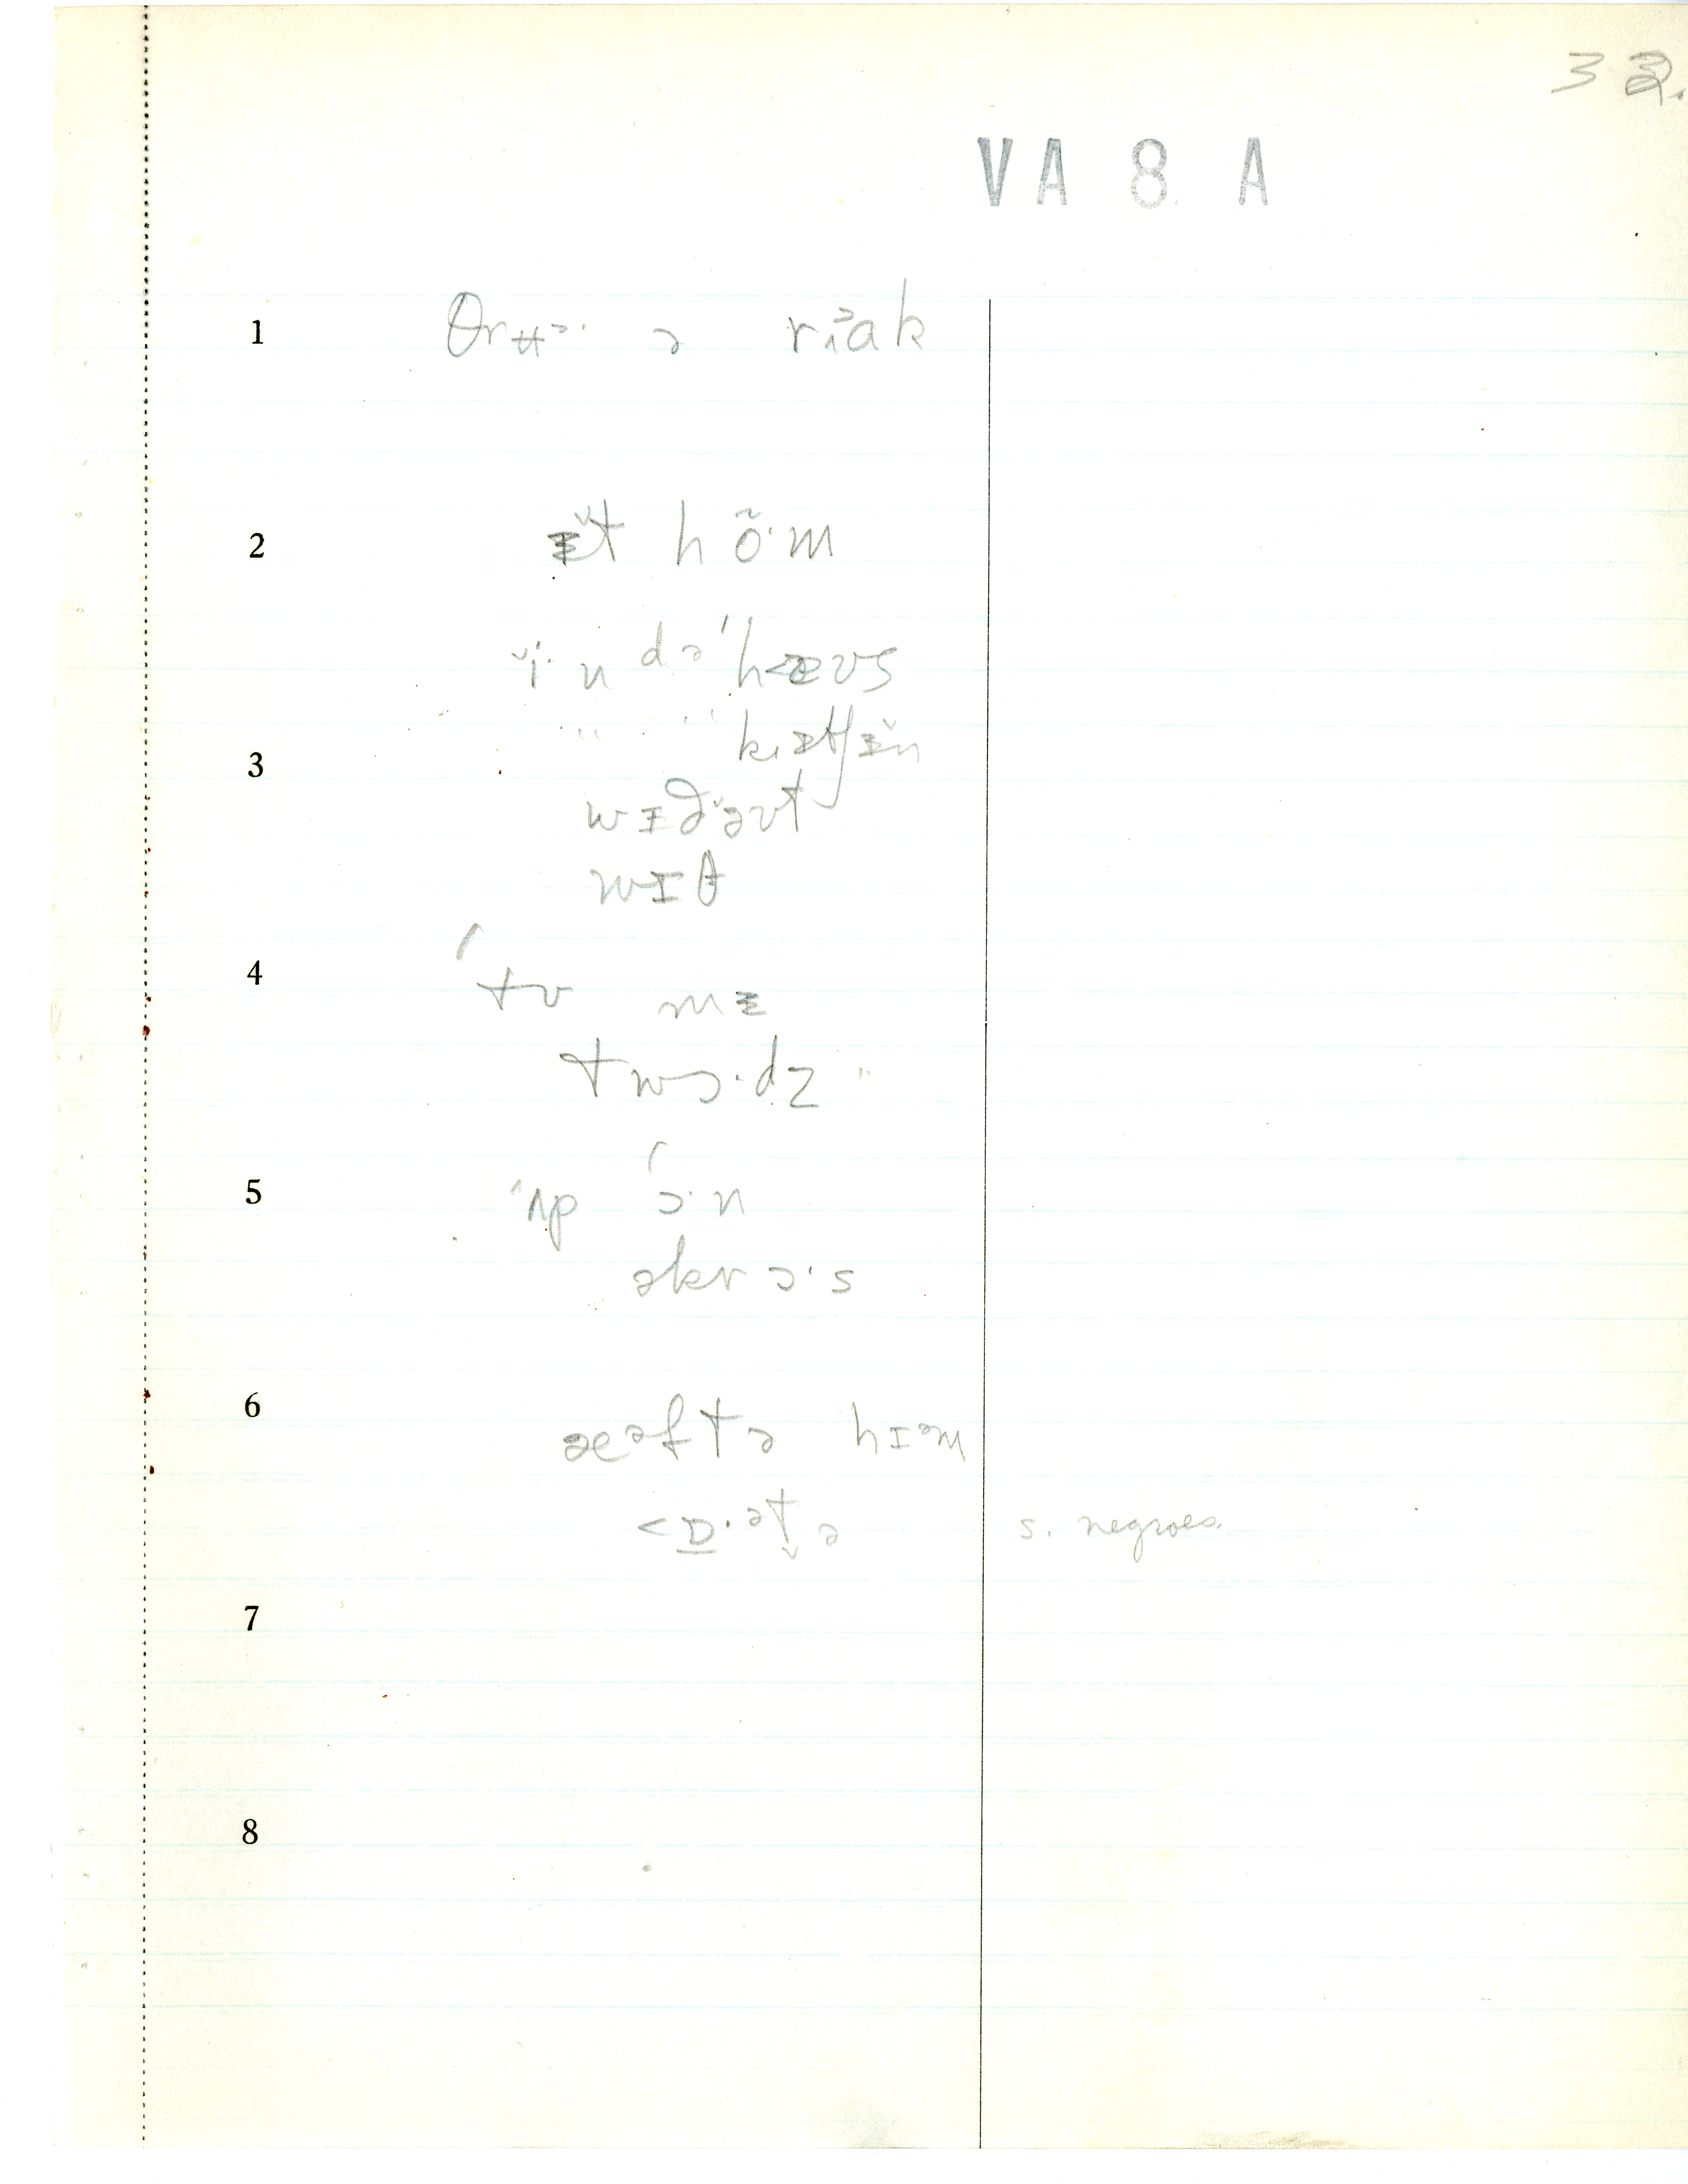 32.
VA 8 A
1 θrʉᵊ· ə riᵊak
2 ᵻ̆t hõ·m
ĭ·n də ˈhæʊs
3 " " kᵻtʃᵻ̆n
wɪðəʊt
wɪθ
4 ˈtʊ mᵻ
twɔ·dz "
5 ˈʌp ˈɔ·n
əkrɔ·s
6 æᵊftə hɪᵊm
<ɒ·ᵊt̬ə s. negroes.
7
8